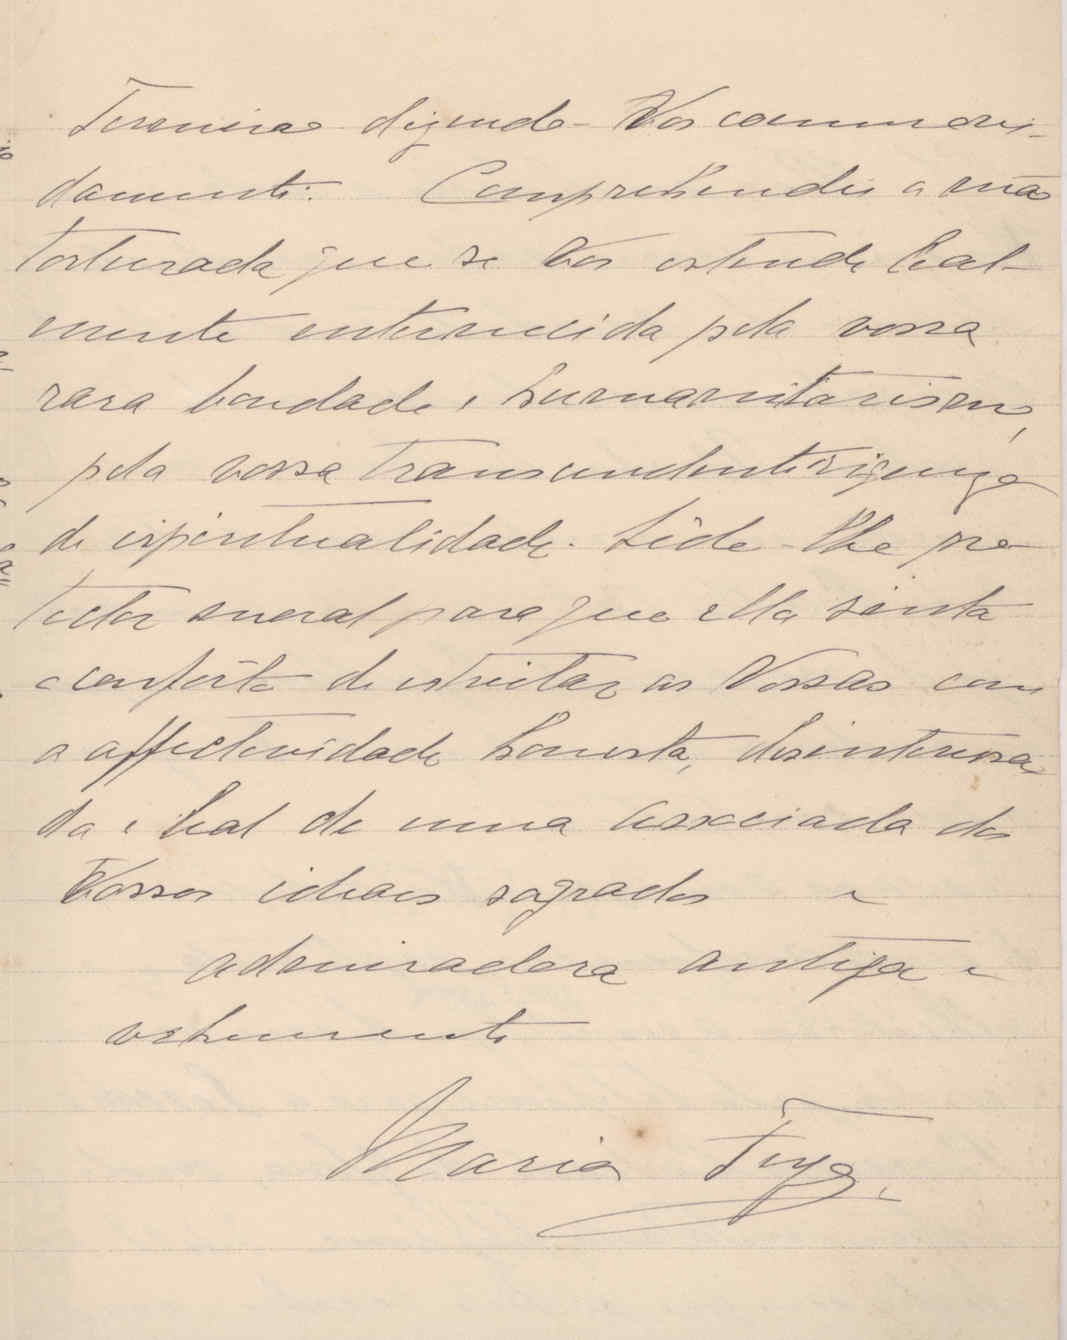 Termino dizendo-Vos commovi-
damente: Comprehendei a mão
torturada que se Vos estende leal-
mente enternecida pela vossa
rara bondade e humanitarismo,
pela vossa transcendente riqueza
de espiritualidade. Sêde-lhe pro-
tector moral para que ella sinta
o confôrto de estreitar as Vossas com
a affectividade honesta, desinteressa-
da e leal de uma associada dos
Vossos ideaes sagrados e
admiradora antiga e
vehemente
Maria